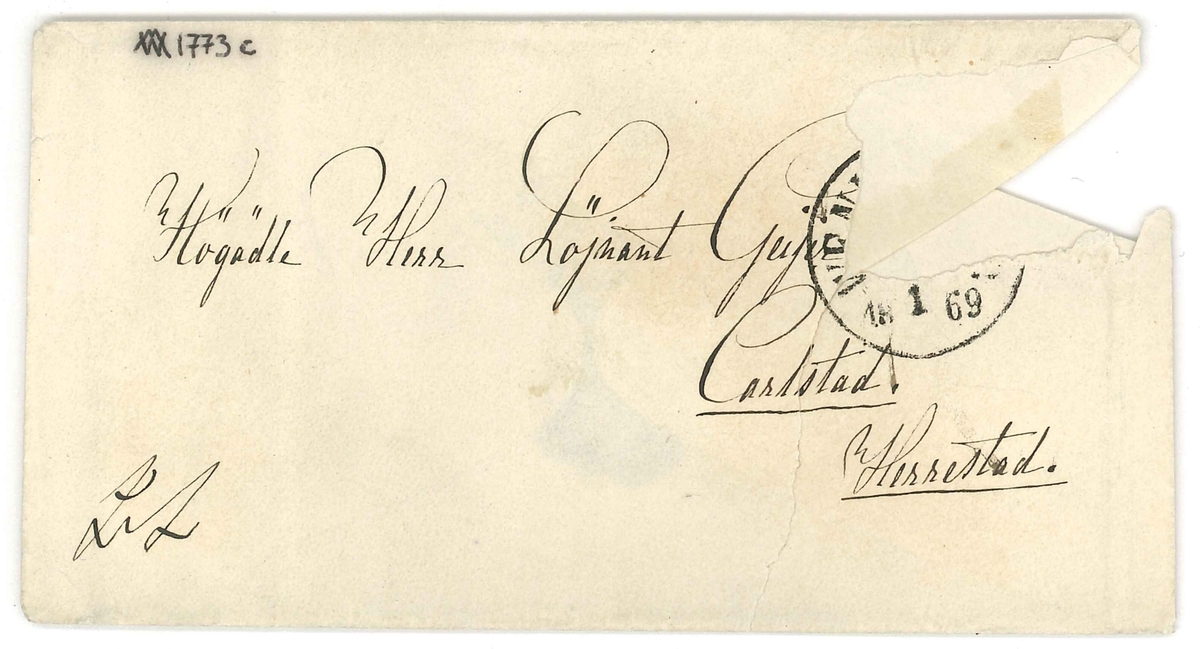 1773 c
Högädle Herr Löjnant Geijer
18 1 69
Carlstad.
Herrestad.